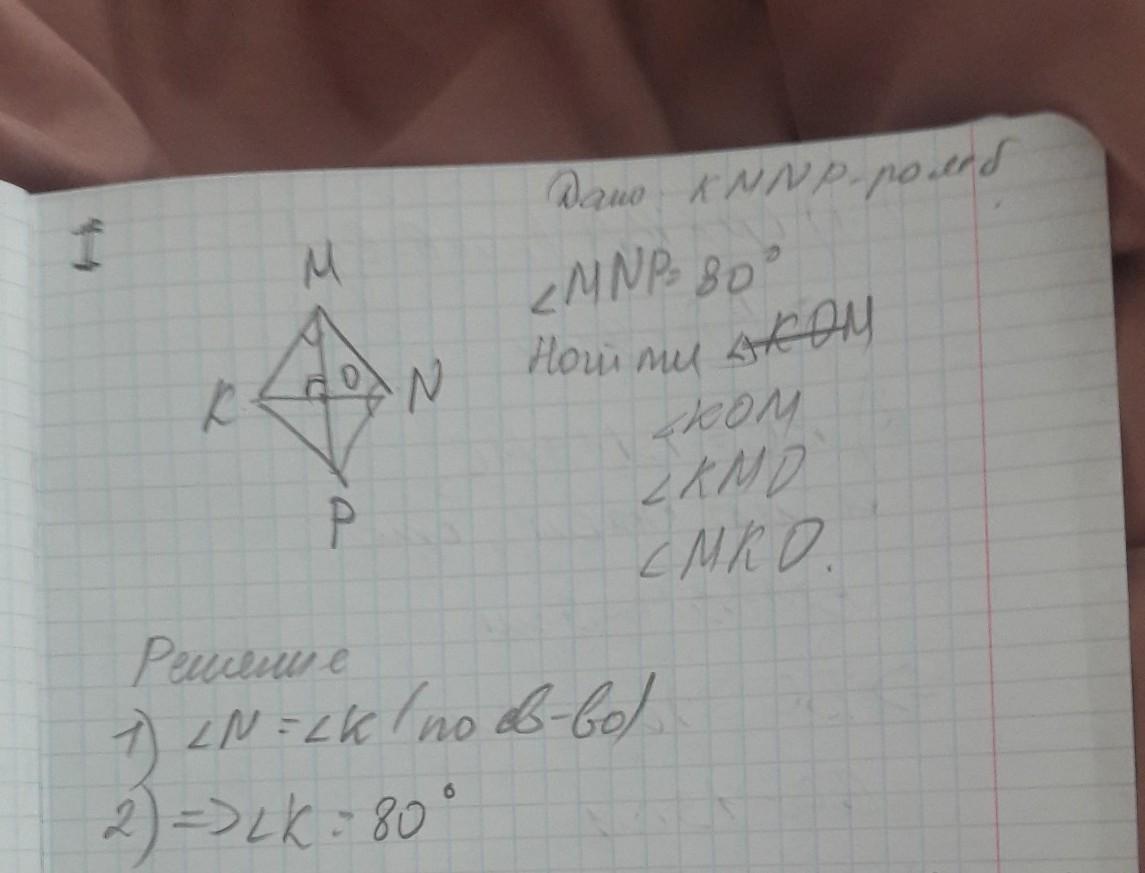 Дано: KMNP-ромб.
I
∠MNP=80°
Найти ∠KOM
∠KOM
∠KMO
∠MKO.
M
K
O
N
P
Решение
1) ∠N=∠K (по св-во)
2) =>∠K=80°